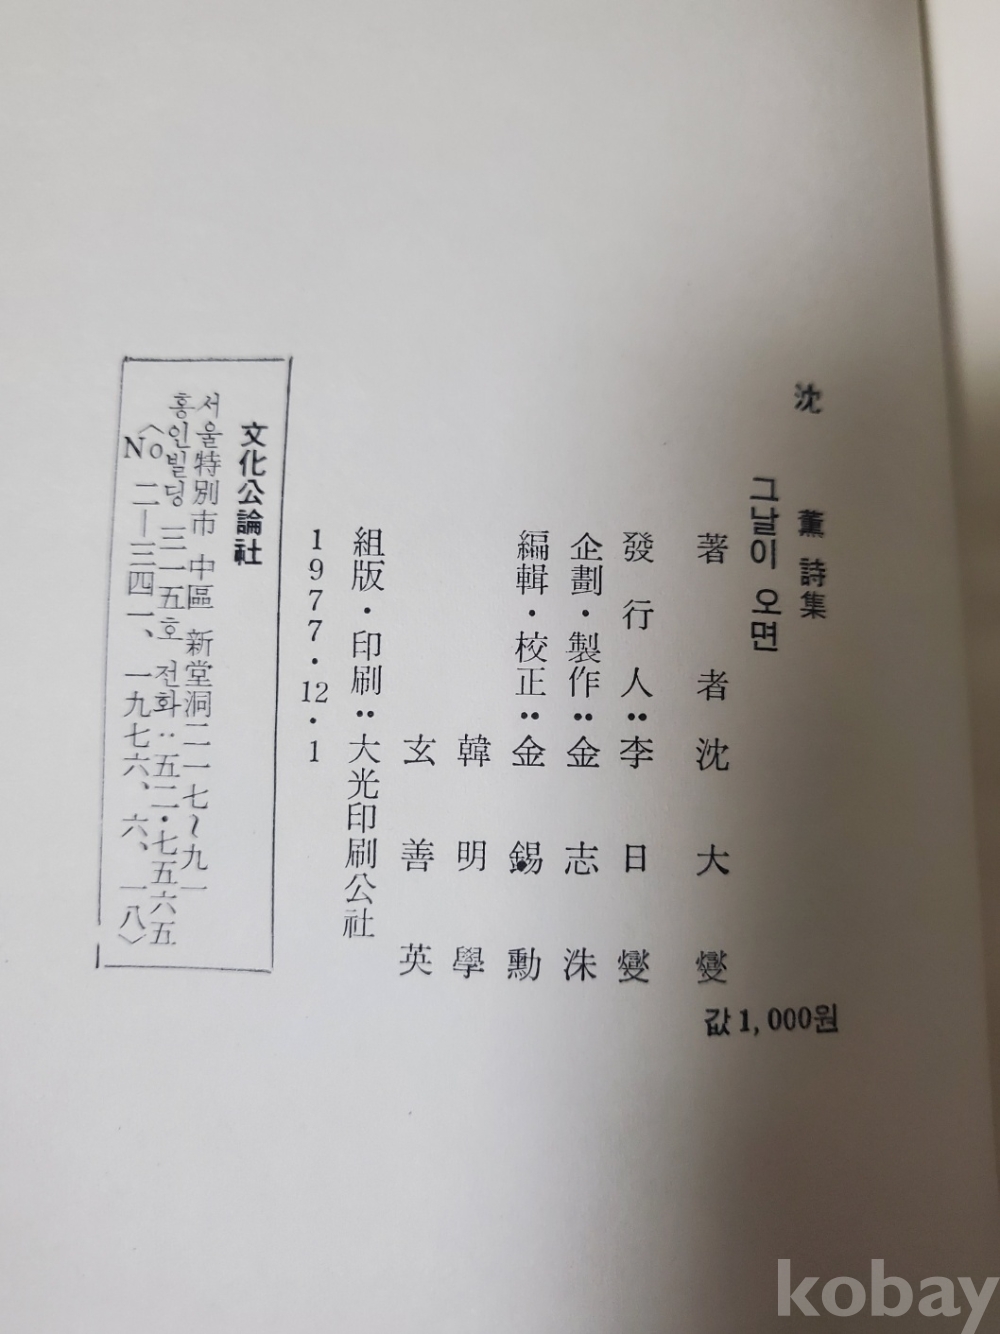 沈 薰 詩集
그날이 오면
著 者 沈 大 燮
發 行 人: 李 日 燮
企劃·製作: 金 志 洙
編輯·校正: 金 錫 勳
韓 明 學
玄 善 英
組版·印刷: 大光印刷公社
1977·12·1
文化公論社
서울特別市 中區 新堂洞二一七~九一
홍인빌딩 三一五호 전화:五二·七五六五
〈No 二—三四一、一九七六、六、一八〉
값 1,000원
kobay